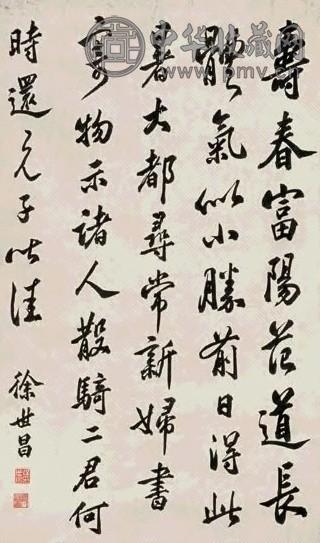 壽春富陽范道長
體氣似小勝前日得此
書大都尋常新婦書
寄物示諸人散騎二君何
時還兄子以佳
徐世昌
中华收藏网
www.pmv.cn